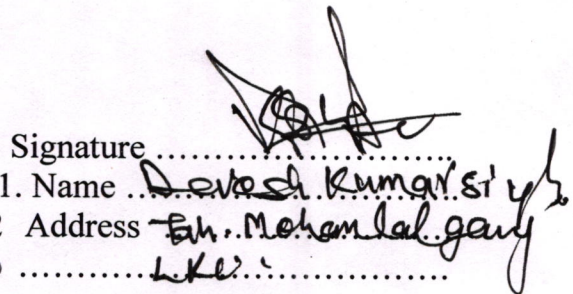 Signature ..............................
1. Name Devesh Kumar Singh
2 Address Teh. Mohanlalganj
LKO.